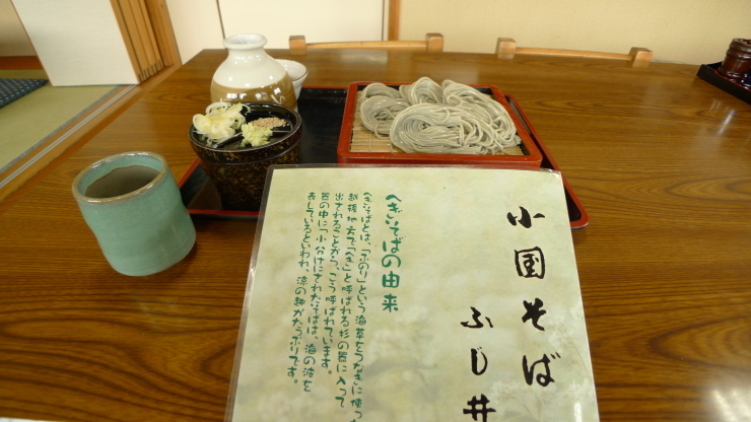 小国そば
ふじ井
へぎそばの由来
へぎそばとは、「ふのり」という海草をつなぎに使っ
越後地方で「へぎ」と呼ばれる杉の器に入って
出されることから、こう呼ばれています。
器の中に「小分けにされたそばは、海の波を
表しているといわれ、涼の趣がたっぷりです。